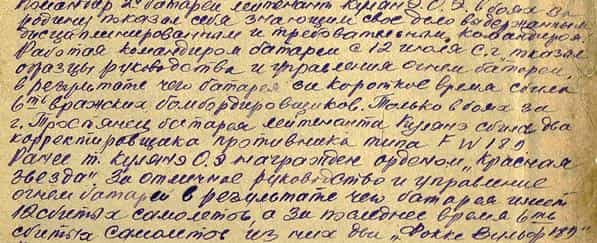 Командир 2й батареи лейтенант Куляэ О.Э. в боях за
родину показал себя знающим свое дело выдержанным
дисциплинированным и требовательным, командиром.
Работая командиром батареи с 12 июля с.г. показал
образцы руководства и управления огнем батареи,
в результате чего батарея за короткое время сбила
6ть вражских бомбардировщиков. Только в боях за
г. Тростянец батарея лейтенанта Куляэ сбила два
корректировщика противника типа FW 189
Ранее т. Куляэ О.Э награжден орденом „Красная
звезда" За отличное руководство и управление
огнем батареи в результате чего батарея имеет
12 сбитых самолетов, а за последнее время 6ть
сбитых самолетов из них два „Фокке Вульф 189"